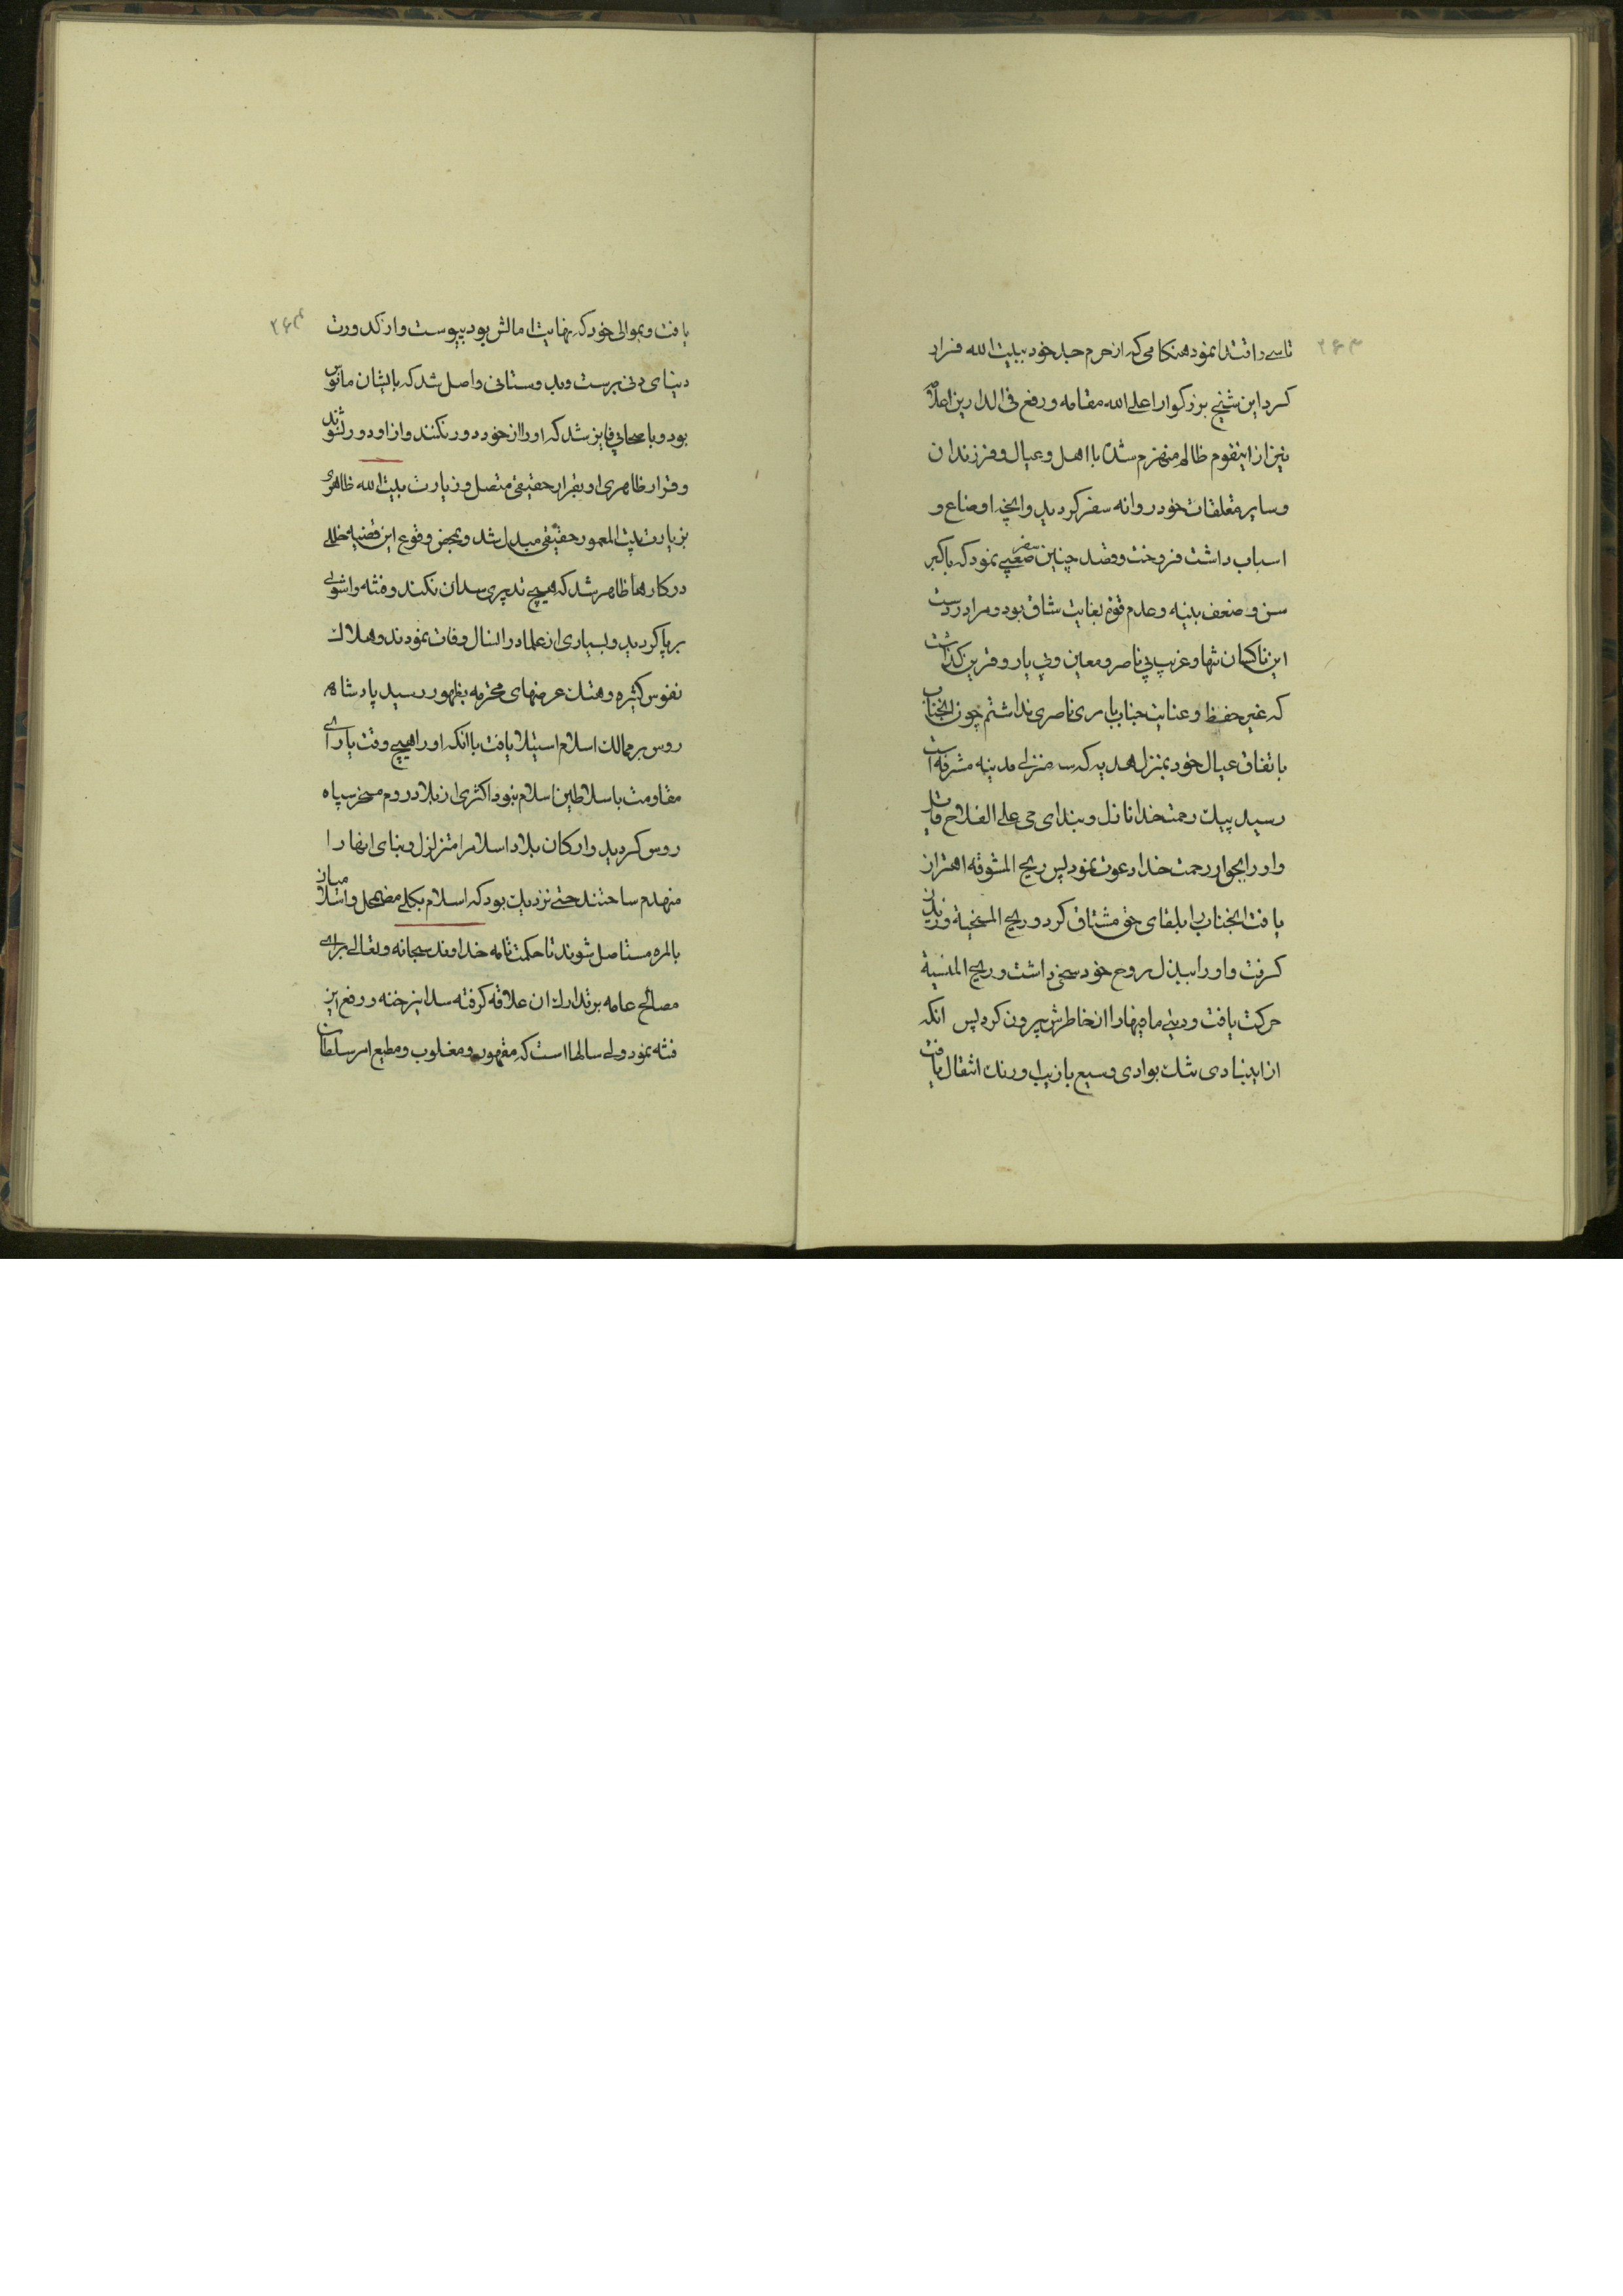 ۲۶۳
تاسی و اقتدا نمود هنکامی که از حرم جد خود ببیت الله فرار
کرد این شیخ بزرکوار اعلی الله مقامه و رفع فی الدارین اعلامه
نیز از اینقوم ظالم منهزم شده با اهل و عیال و فرزندان
و سایر متعلقات خود روانه سفر کردید و انچه اوضاع و
اسباب داشت فروخت و قصد چنین سفر صعبی نمود که با کبر
سن و ضعف بنیه و عدم قوة بغایت شاق بود و مرا در دست
این ناکسان تنها و غریب بی ناصر و معین و بی یار و قرین کذاشت
که غیر حفظ و عنایت جناب باری ناصری نداشتم چون انجناب
باتفاق عیال خود بمنزل هدیه که سه منزلی مدینه مشرفه است
رسید پیک رحمت خدا نازل و بندای حی علی الفلاح قایل
و او را بجوار رحمت خدا دعوت نمود پس ریح المشوقه اهتزاز
یافت انجناب را بلقای حق مشتاق کرد و ریح المسخیة وزیدن
کرفت و او را ببذل روح خود سخی داشت و ریح المنسیة
حرکت یافت و دنیی مافیها را از خاطرش بیرون کرد پس انکه
از این وادی تنک بوادی وسیع با زیب و رنک انتقال یافت
۲۶۴
یافت و بموالی خود که نهایت امالش بود بپیوست و از کدورت
دنیای دنی برست و بدوستانی واصل شد که بایشان مانوس
بود و باصحابی فایز شد که او را از خود دور نکنند و از او دور نشوند
و فرار ظاهری او بفرار حقیقی متصل و زیارت بیت الله ظاهری
بزیارت بیت المعمور حقیقی مبدل شد و بمحض وقوع این قضیه خللی
در کارها ظاهر شد که هیچ تدبیری سد ان نکند و فتنه و اشوبی
برپا کردید و بسیاری از علما در انسال وفات نمودند و هلاک
نفوس کثیره و هتک عرضهای محترمه بظهور رسید پادشاه
روس بر ممالک اسلام استیلا یافت با انکه او را هیچ وقت یارای
مقاومت با سلاطین اسلام نبود اکثری از بلاد روم مسخر سپاه
روس کردید و ارکان بلاد اسلام را متزلزل و بنای انها را
منهدم ساختند حتی نزدیک بود که اسلام بکلی مضمحل و اسلامیان
بالمره مستاصل شوند تا حکمت تامه خداوند سبحانه و تعالی برای
مصالح عامه بر تدارک ان علاقه کرفته سد این رخنه و رفع این
فتنه نمود ولی سالها است که مقهور و مغلوب و مطیع امر سلطان